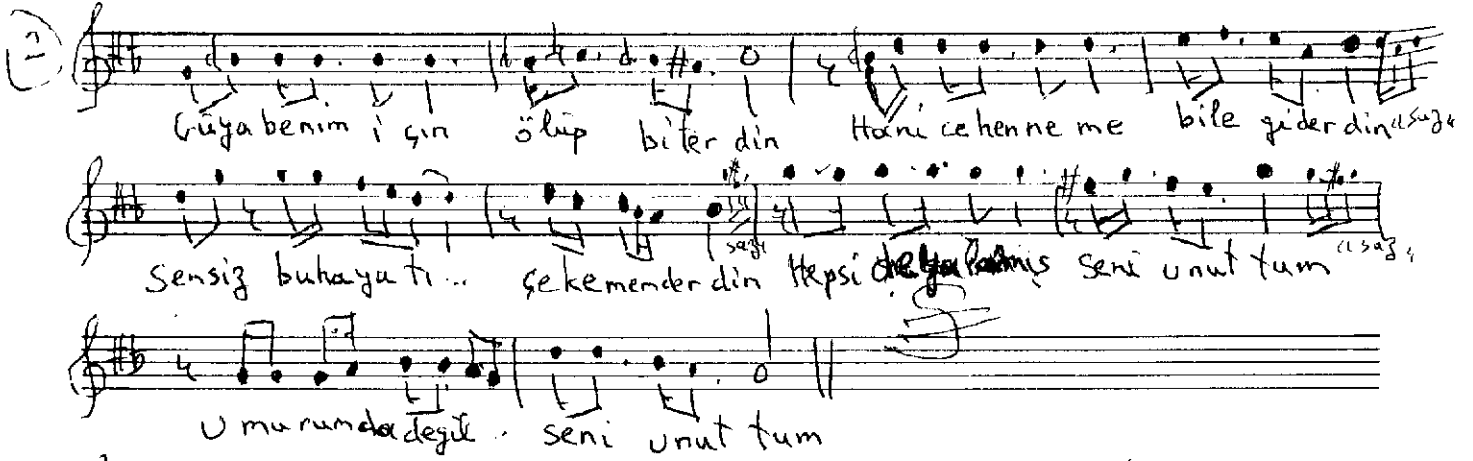 2
Güya benim i çin ölüp biter din Hani cehenneme bile giderdin (saz)
Sensiz buhayatı... çekemem der din Hepsi seni unut tum (saz)
saz
U murumdadegil.. seni unut tum